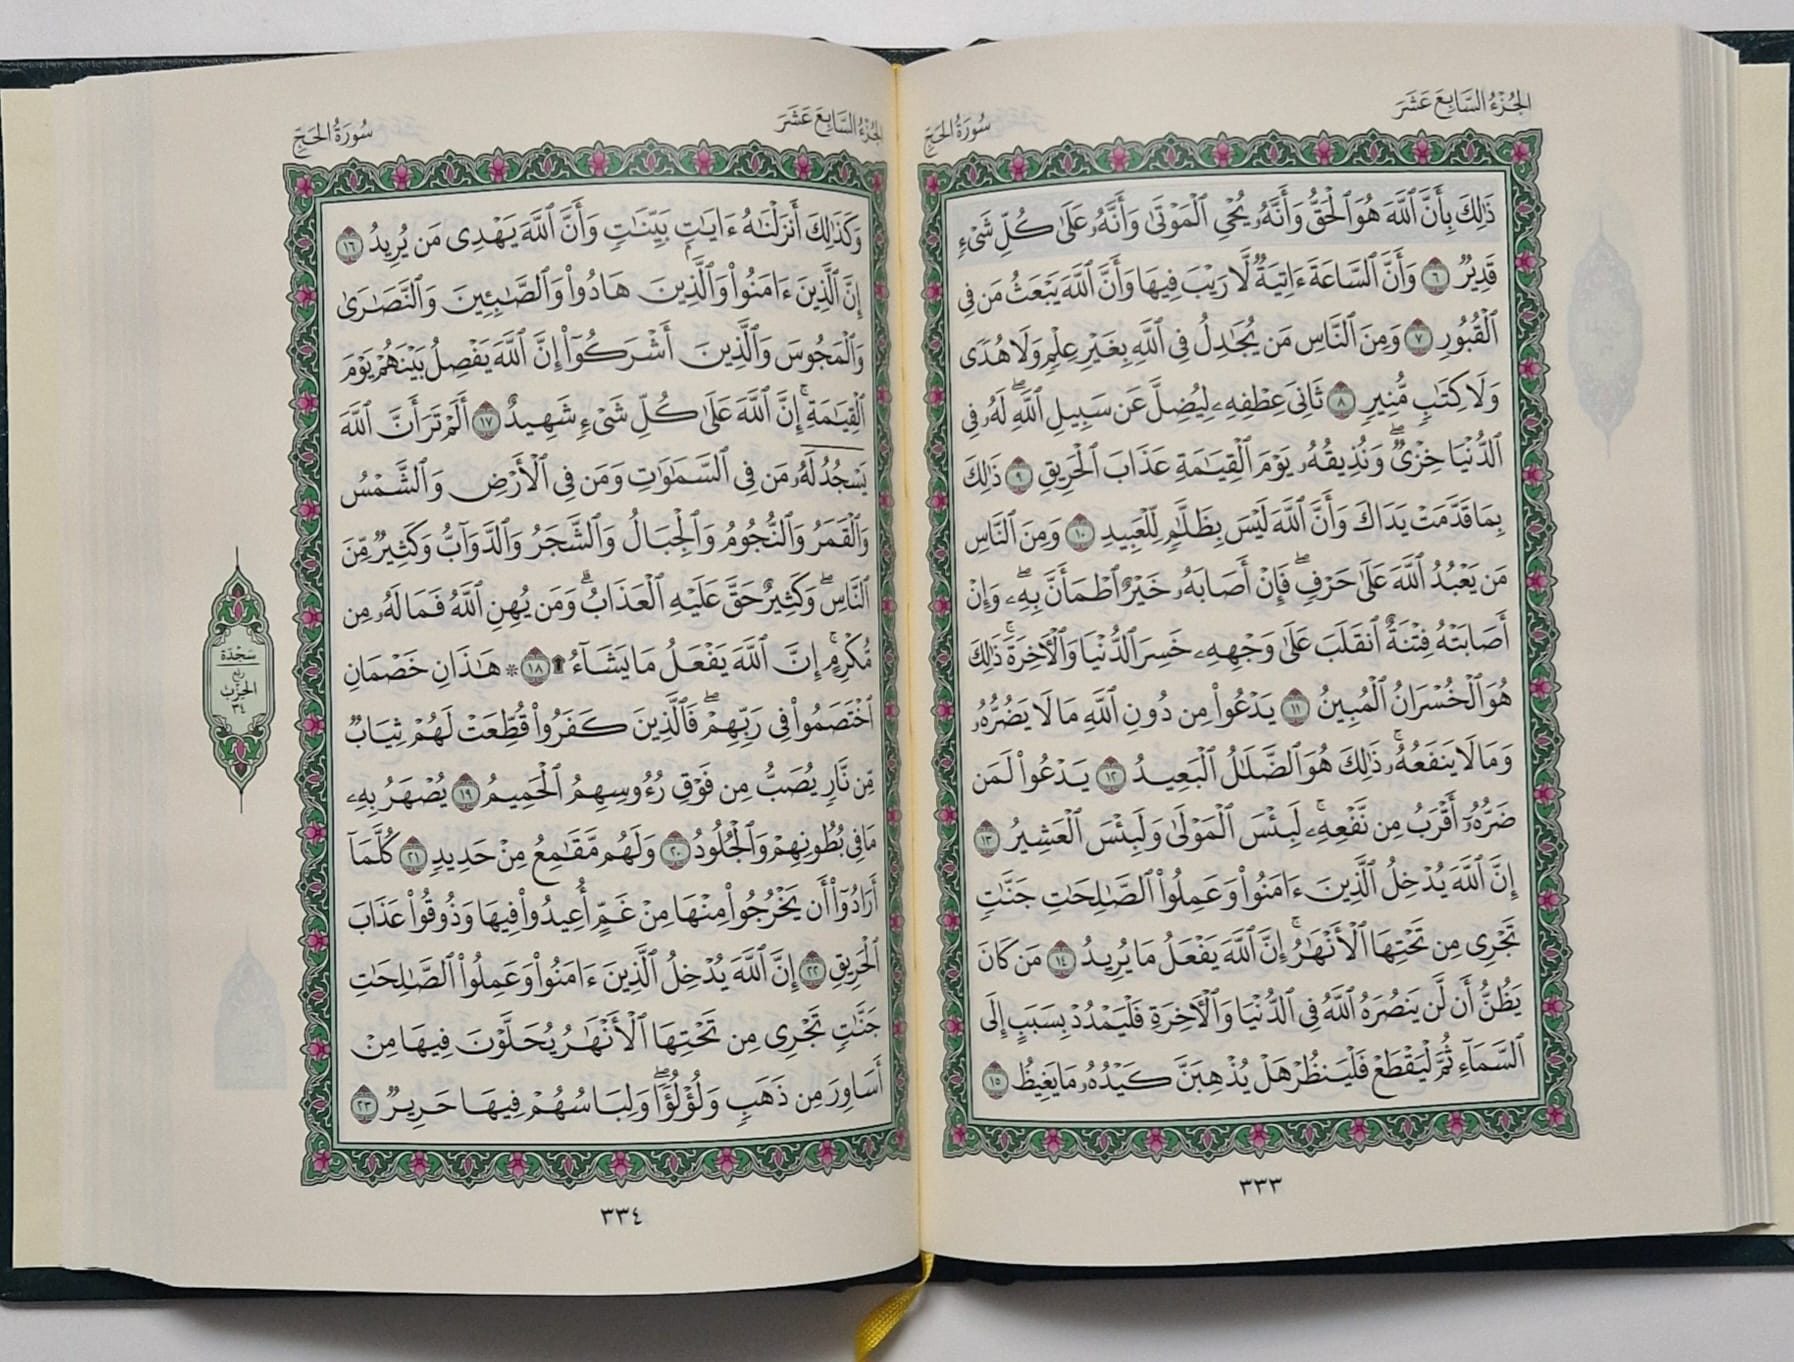 الجُزْءُ السَّابِعَ عَشَرَ
سُورَةُ الحَجِّ
ذَٰلِكَ بِأَنَّ ٱللَّهَ هُوَ ٱلْحَقُّ وَأَنَّهُۥ يُحْىِ ٱلْمَوْتَىٰ وَأَنَّهُۥ عَلَىٰ كُلِّ شَىْءٍ
قَدِيرٌ ٦ وَأَنَّ ٱلسَّاعَةَ ءَاتِيَةٌ لَّا رَيْبَ فِيهَا وَأَنَّ ٱللَّهَ يَبْعَثُ مَن فِى
ٱلْقُبُورِ ٧ وَمِنَ ٱلنَّاسِ مَن يُجَٰدِلُ فِى ٱللَّهِ بِغَيْرِ عِلْمٍ وَلَا هُدًى
وَلَا كِتَٰبٍ مُّنِيرٍ ٨ ثَانِىَ عِطْفِهِۦ لِيُضِلَّ عَن سَبِيلِ ٱللَّهِۖ لَهُۥ فِى
ٱلدُّنْيَا خِزْىٌۖ وَنُذِيقُهُۥ يَوْمَ ٱلْقِيَٰمَةِ عَذَابَ ٱلْحَرِيقِ ٩ ذَٰلِكَ
بِمَا قَدَّمَتْ يَدَاكَ وَأَنَّ ٱللَّهَ لَيْسَ بِظَلَّٰمٍ لِّلْعَبِيدِ ١٠ وَمِنَ ٱلنَّاسِ
مَن يَعْبُدُ ٱللَّهَ عَلَىٰ حَرْفٍۖ فَإِنْ أَصَابَهُۥ خَيْرٌ ٱطْمَأَنَّ بِهِۦۖ وَإِنْ
أَصَابَتْهُ فِتْنَةٌ ٱنقَلَبَ عَلَىٰ وَجْهِهِۦ خَسِرَ ٱلدُّنْيَا وَٱلْأَخِرَةَۚ ذَٰلِكَ
هُوَ ٱلْخُسْرَانُ ٱلْمُبِينُ ١١ يَدْعُوا۟ مِن دُونِ ٱللَّهِ مَا لَا يَضُرُّهُۥ
وَمَا لَا يَنفَعُهُۥۚ ذَٰلِكَ هُوَ ٱلضَّلَٰلُ ٱلْبَعِيدُ ١٢ يَدْعُوا۟ لَمَن
ضَرُّهُۥٓ أَقْرَبُ مِن نَّفْعِهِۦۚ لَبِئْسَ ٱلْمَوْلَىٰ وَلَبِئْسَ ٱلْعَشِيرُ ١٣
إِنَّ ٱللَّهَ يُدْخِلُ ٱلَّذِينَ ءَامَنُوا۟ وَعَمِلُوا۟ ٱلصَّٰلِحَٰتِ جَنَّٰتٍ
تَجْرِى مِن تَحْتِهَا ٱلْأَنْهَٰرُۚ إِنَّ ٱللَّهَ يَفْعَلُ مَا يُرِيدُ ١٤ مَن كَانَ
يَظُنُّ أَن لَّن يَنصُرَهُ ٱللَّهُ فِى ٱلدُّنْيَا وَٱلْأَخِرَةِ فَلْيَمْدُدْ بِسَبَبٍ إِلَى
ٱلسَّمَآءِ ثُمَّ لْيَقْطَعْ فَلْيَنظُرْ هَلْ يُذْهِبَنَّ كَيْدُهُۥ مَا يَغِيظُ ١٥
٣٣٣
الجُزْءُ السَّابِعَ عَشَرَ
سُورَةُ الحَجِّ
وَكَذَٰلِكَ أَنزَلْنَٰهُ ءَايَٰتٍۭ بَيِّنَٰتٍ وَأَنَّ ٱللَّهَ يَهْدِى مَن يُرِيدُ ١٦
إِنَّ ٱلَّذِينَ ءَامَنُوا۟ وَٱلَّذِينَ هَادُوا۟ وَٱلصَّٰبِـِٔينَ وَٱلنَّصَٰرَىٰ
وَٱلْمَجُوسَ وَٱلَّذِينَ أَشْرَكُوٓا۟ إِنَّ ٱللَّهَ يَفْصِلُ بَيْنَهُمْ يَوْمَ
ٱلْقِيَٰمَةِۚ إِنَّ ٱللَّهَ عَلَىٰ كُلِّ شَىْءٍ شَهِيدٌ ١٧ أَلَمْ تَرَ أَنَّ ٱللَّهَ
يَسْجُدُ لَهُۥ مَن فِى ٱلسَّمَٰوَٰتِ وَمَن فِى ٱلْأَرْضِ وَٱلشَّمْسُ
وَٱلْقَمَرُ وَٱلنُّجُومُ وَٱلْجِبَالُ وَٱلشَّجَرُ وَٱلدَّوَآبُّ وَكَثِيرٌ مِّنَ
ٱلنَّاسِۖ وَكَثِيرٌ حَقَّ عَلَيْهِ ٱلْعَذَابُۗ وَمَن يُهِنِ ٱللَّهُ فَمَا لَهُۥ مِن
مُّكْرِمٍۚ إِنَّ ٱللَّهَ يَفْعَلُ مَا يَشَآءُ ۩ ١٨ ۞ هَٰذَانِ خَصْمَانِ
ٱخْتَصَمُوا۟ فِى رَبِّهِمْۖ فَٱلَّذِينَ كَفَرُوا۟ قُطِّعَتْ لَهُمْ ثِيَابٌ
مِّن نَّارٍ يُصَبُّ مِن فَوْقِ رُءُوسِهِمُ ٱلْحَمِيمُ ١٩ يُصْهَرُ بِهِۦ
مَا فِى بُطُونِهِمْ وَٱلْجُلُودُ ٢٠ وَلَهُم مَّقَٰمِعُ مِنْ حَدِيدٍ ٢١ كُلَّمَآ
أَرَادُوٓا۟ أَن يَخْرُجُوا۟ مِنْهَا مِنْ غَمٍّ أُعِيدُوا۟ فِيهَا وَذُوقُوا۟ عَذَابَ
ٱلْحَرِيقِ ٢٢ إِنَّ ٱللَّهَ يُدْخِلُ ٱلَّذِينَ ءَامَنُوا۟ وَعَمِلُوا۟ ٱلصَّٰلِحَٰتِ
جَنَّٰتٍ تَجْرِى مِن تَحْتِهَا ٱلْأَنْهَٰرُ يُحَلَّوْنَ فِيهَا مِنْ
أَسَاوِرَ مِن ذَهَبٍ وَلُؤْلُؤًاۖ وَلِبَاسُهُمْ فِيهَا حَرِيرٌ ٢٣
سَجْدَة
رُبْع
الحِزْبِ
٣٤
٣٣٤